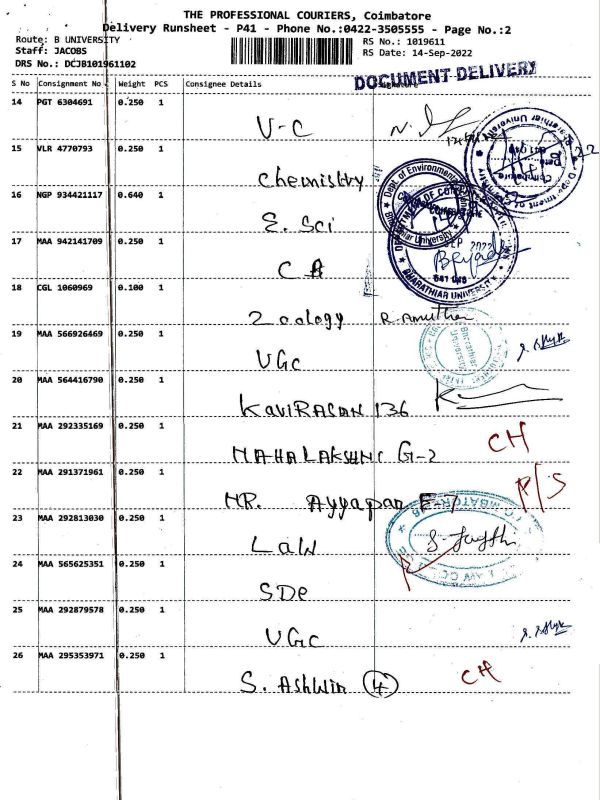 THE PROFESSIONAL COURIERS, Coimbatore
Delivery Runsheet - P41 - Phone No.:0422-3505555 - Page No.:2
Route: B UNIVERSITY
Staff: JACOBS
DRS No.: DCJB101961102
RS No.: 1019611
RS Date: 14-Sep-2022
DOCUMENT DELIVERY
S No Consignment No Weight PCS Consignee Details
14 PGT 6304691 0.250 1
V-C
15 VLR 4770793 0.250 1
Chemistry
16 NGP 934421117 0.640 1
E. Sci
17 MAA 942141709 0.250 1
18 CGL 1060969 0.100 1
Zoology R. Amutha
19 MAA 566926469 0.250 1
UGC
20 MAA 564416790 0.250 1
KAVIRASAN 136
21 MAA 292335169 0.250 1
MAHALAKSHMI G-2 CH
22 MAA 291371961 0.250 1
MR. Ayyapan F-7 P/S
23 MAA 292813030 0.250 1
LAW
24 MAA 565625351 0.250 1
SDE
25 MAA 292879578 0.250 1
UGC
26 MAA 295353971 0.250 1
S. Ashwin 4 CH
Dept of Environmental
Bharathiar University
BHARATHIAR UNIVERSITY
641 046
SEP 2022